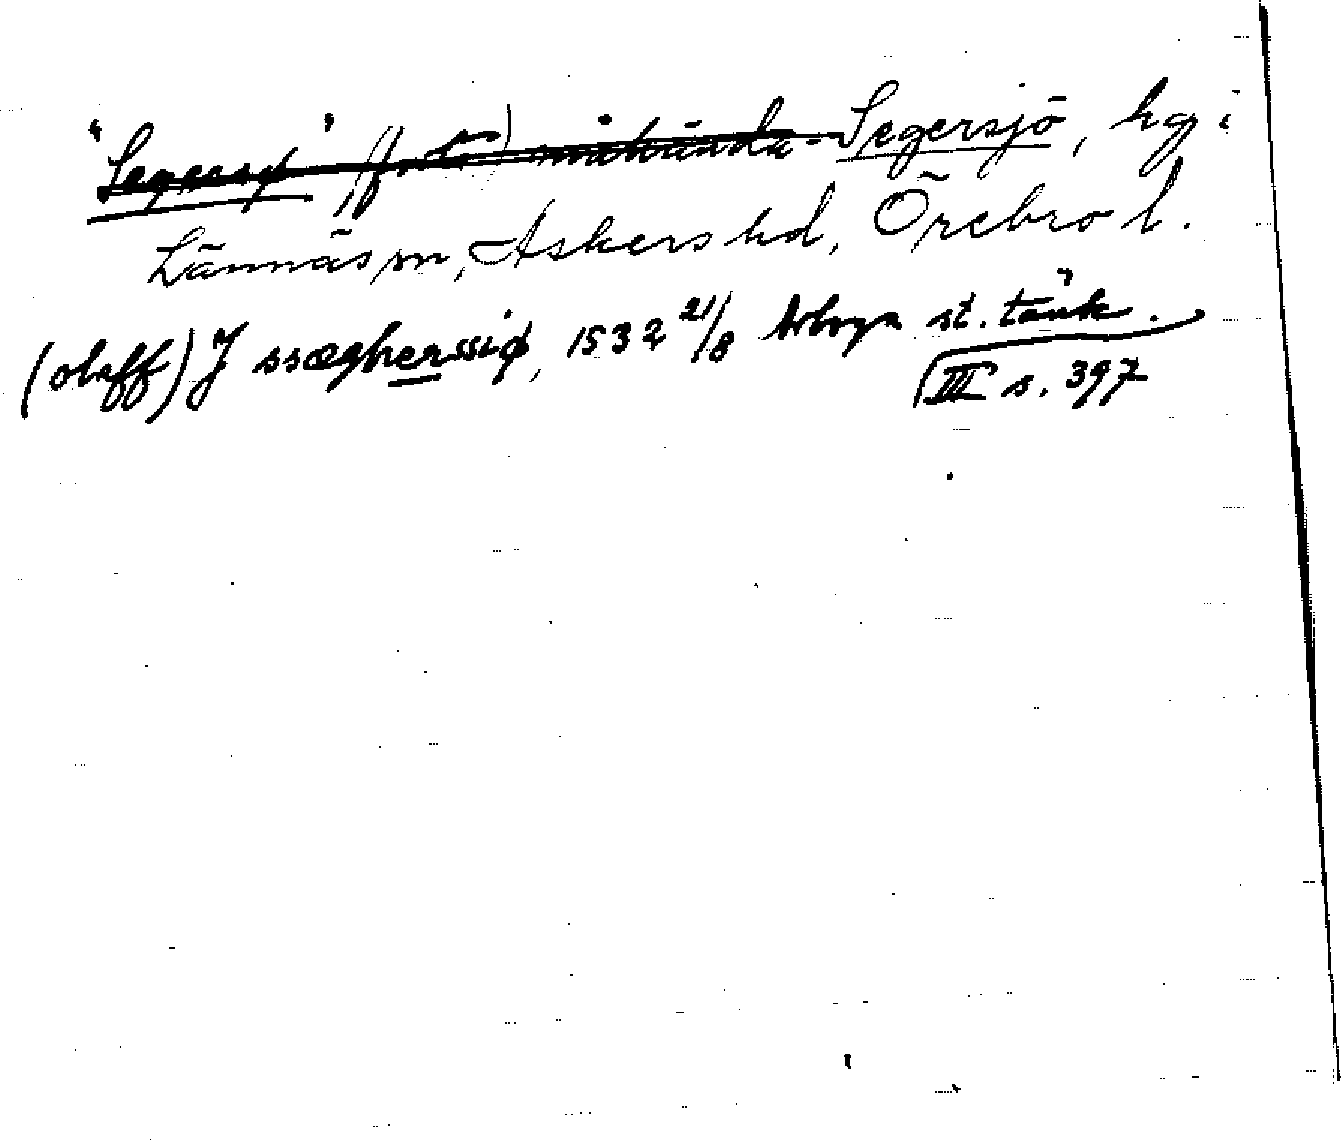 "Segersjø" Segersjö, hg i
Lännäs sn, Askers hd, Örebro l.
(olaff) J ssægherssiø, 1532 21/8 Arboga st. tänk.
III s. 397